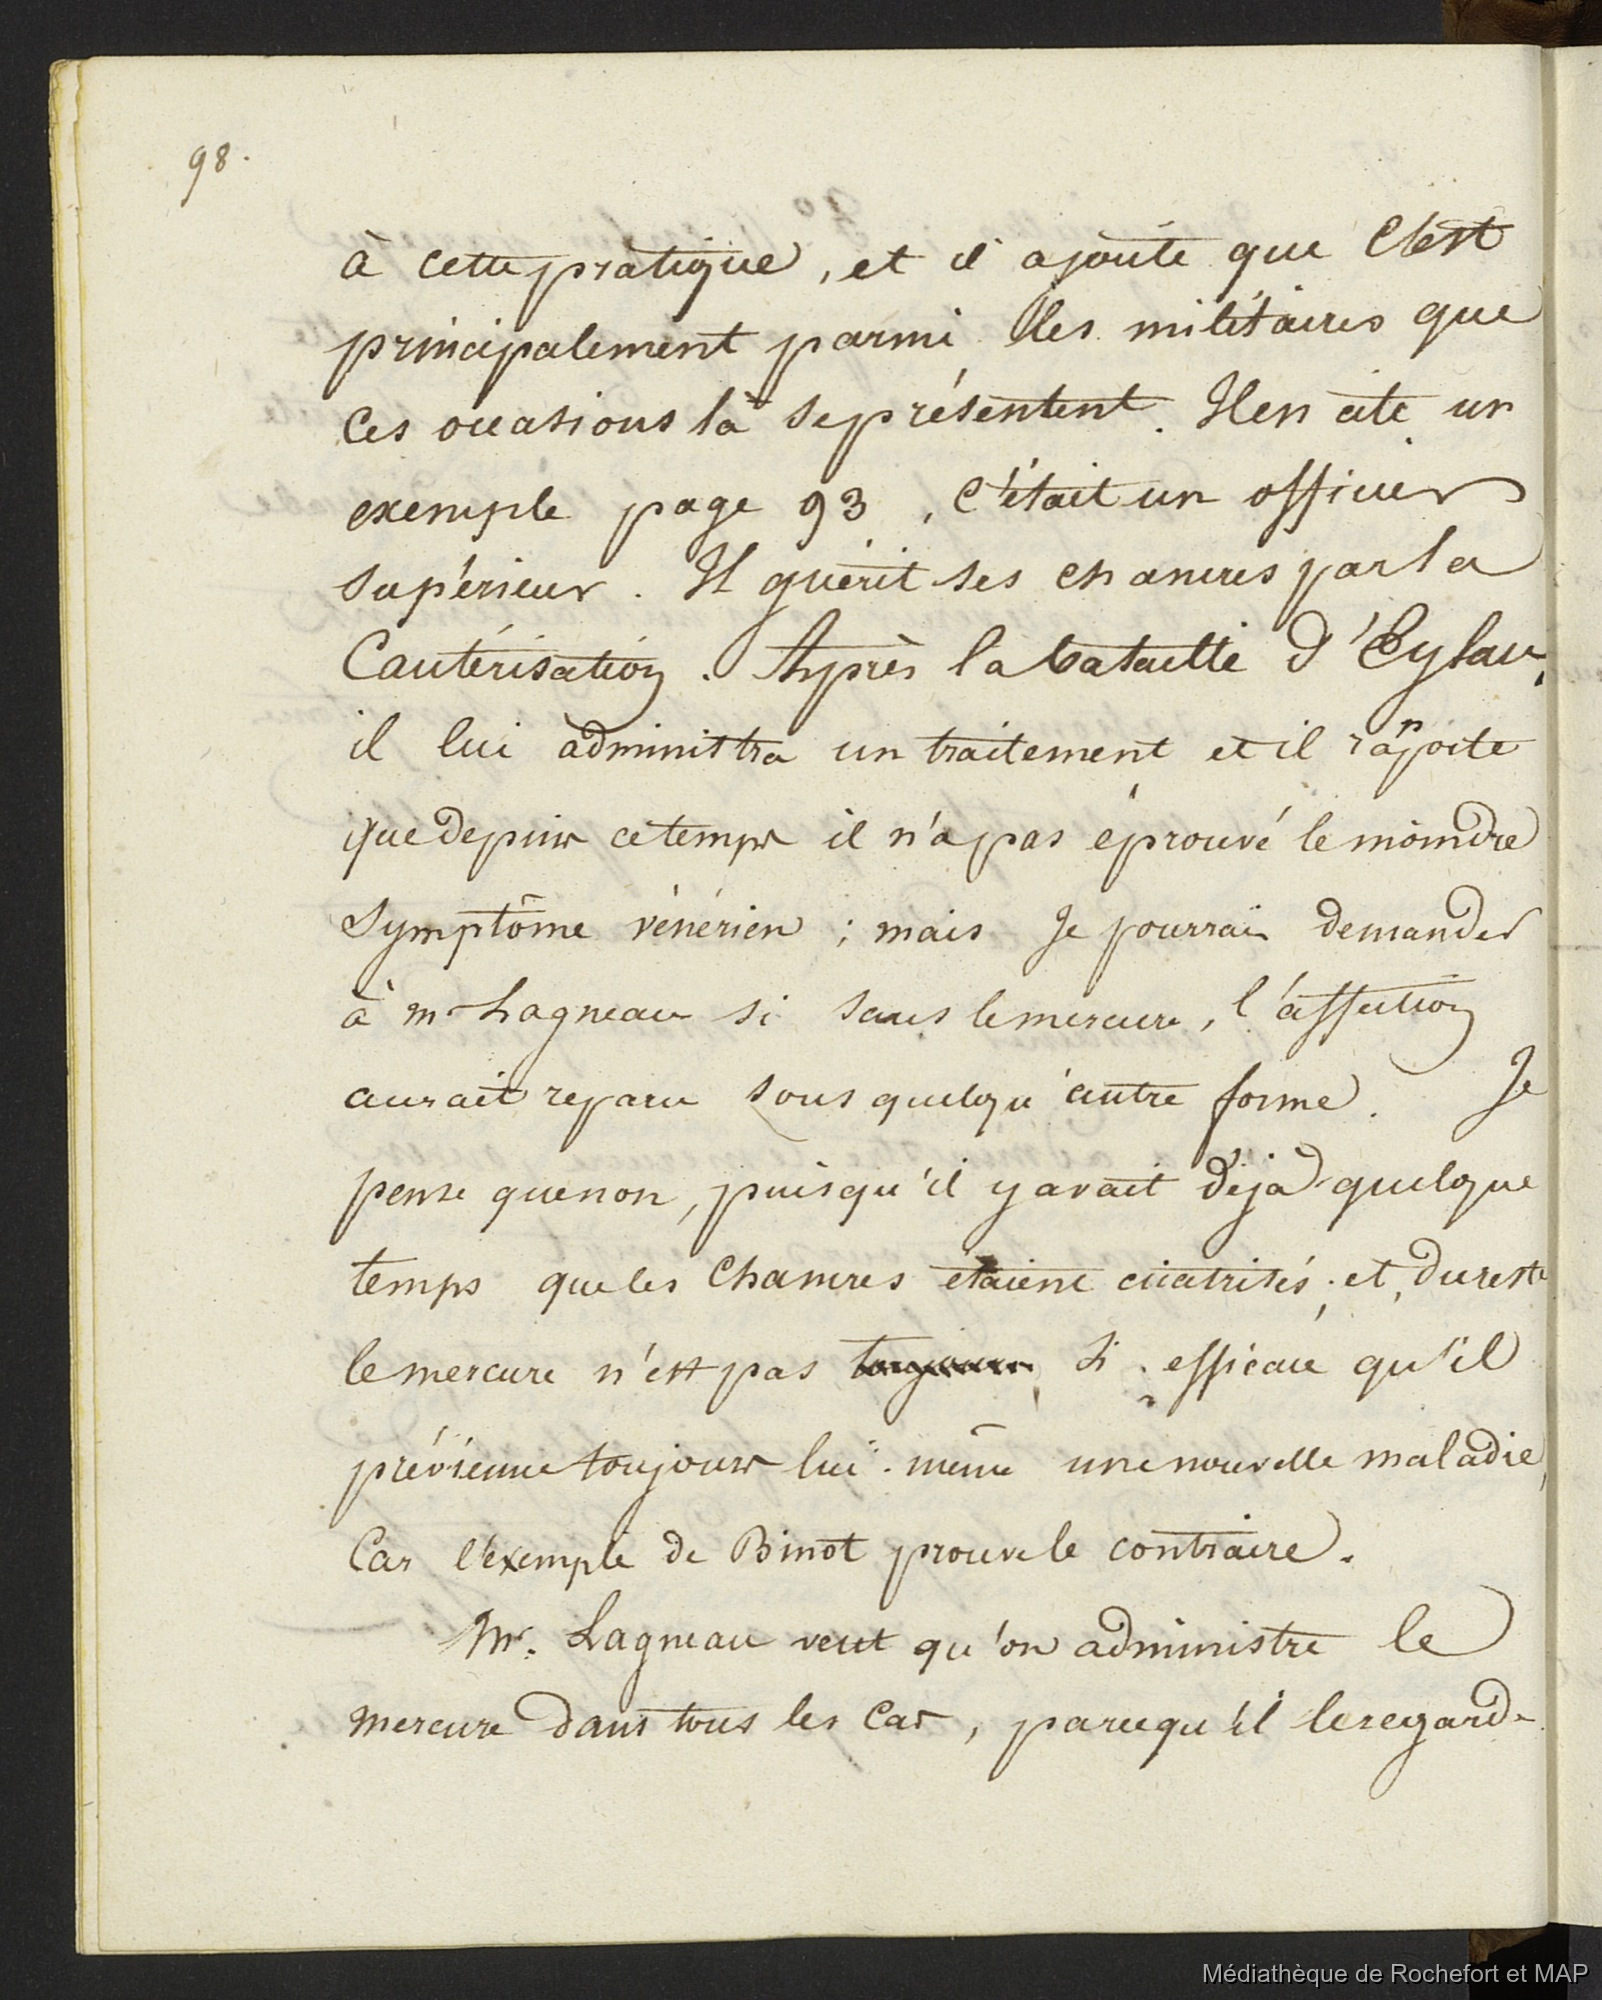 98.
à cette pratique, et il ajoute que C'est
principalement parmi les militaires que
Ces occasions là se présentent. Il en cite un
exemple page 93, C'était un officier
Supérieur. Il guérit ses chancres par la
Cautérisation. Après la bataille d'Eylau,
il lui administra un traitement et il rapporte
que depuis ce temps il n'a pas éprouvé le moindre
Symptôme vénérien ; mais Je pourrais demander
à mr Lagneau si sans le mercure, l'affection
aurait reparu sous quelqu'autre forme. Je
pense que non, puisqu'il y avait déjà quelque
temps que les Chancres étaient cicatrisés ; et, du reste
le mercure n'est pas toujours si efficace qu'il
prévienne toujours lui-même une nouvelle maladie,
Car l'exemple de Binot prouve le contraire.
Mr. Lagneau veut qu'on administre le
mercure dans tous les Cas, parcequ'il le regarde
Médiathèque de Rochefort et MAP